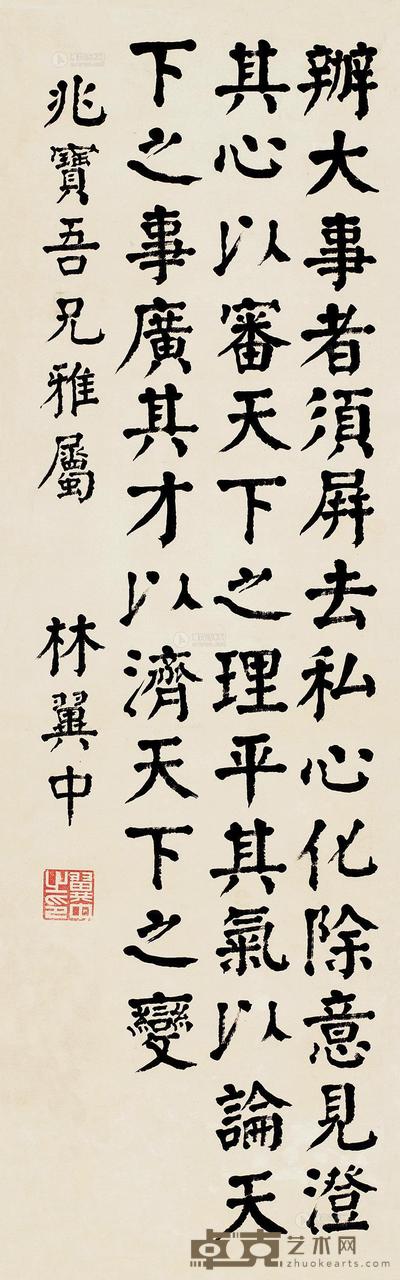 辦大事者須屏去私心化除意見澄
其心以審天下之理平其氣以論天
下之事廣其才以濟天下之變
兆寶吾兄雅屬
林翼中
翼中之印
卓克艺术网
zhuokearts.com